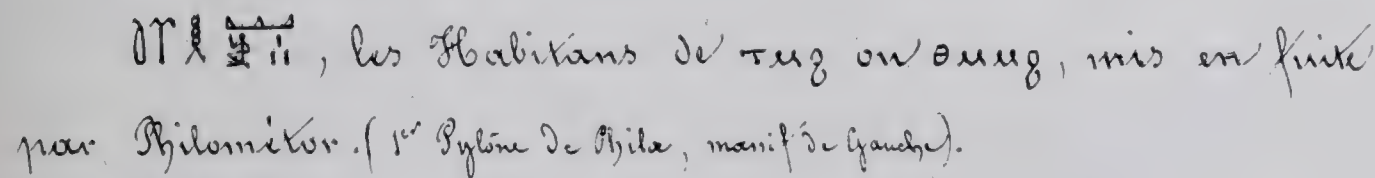 les Habitans de ⲧⲙϩ ou mis en fuite
par Philométor. (1er Pylône de Philæ, massif de Gauche).